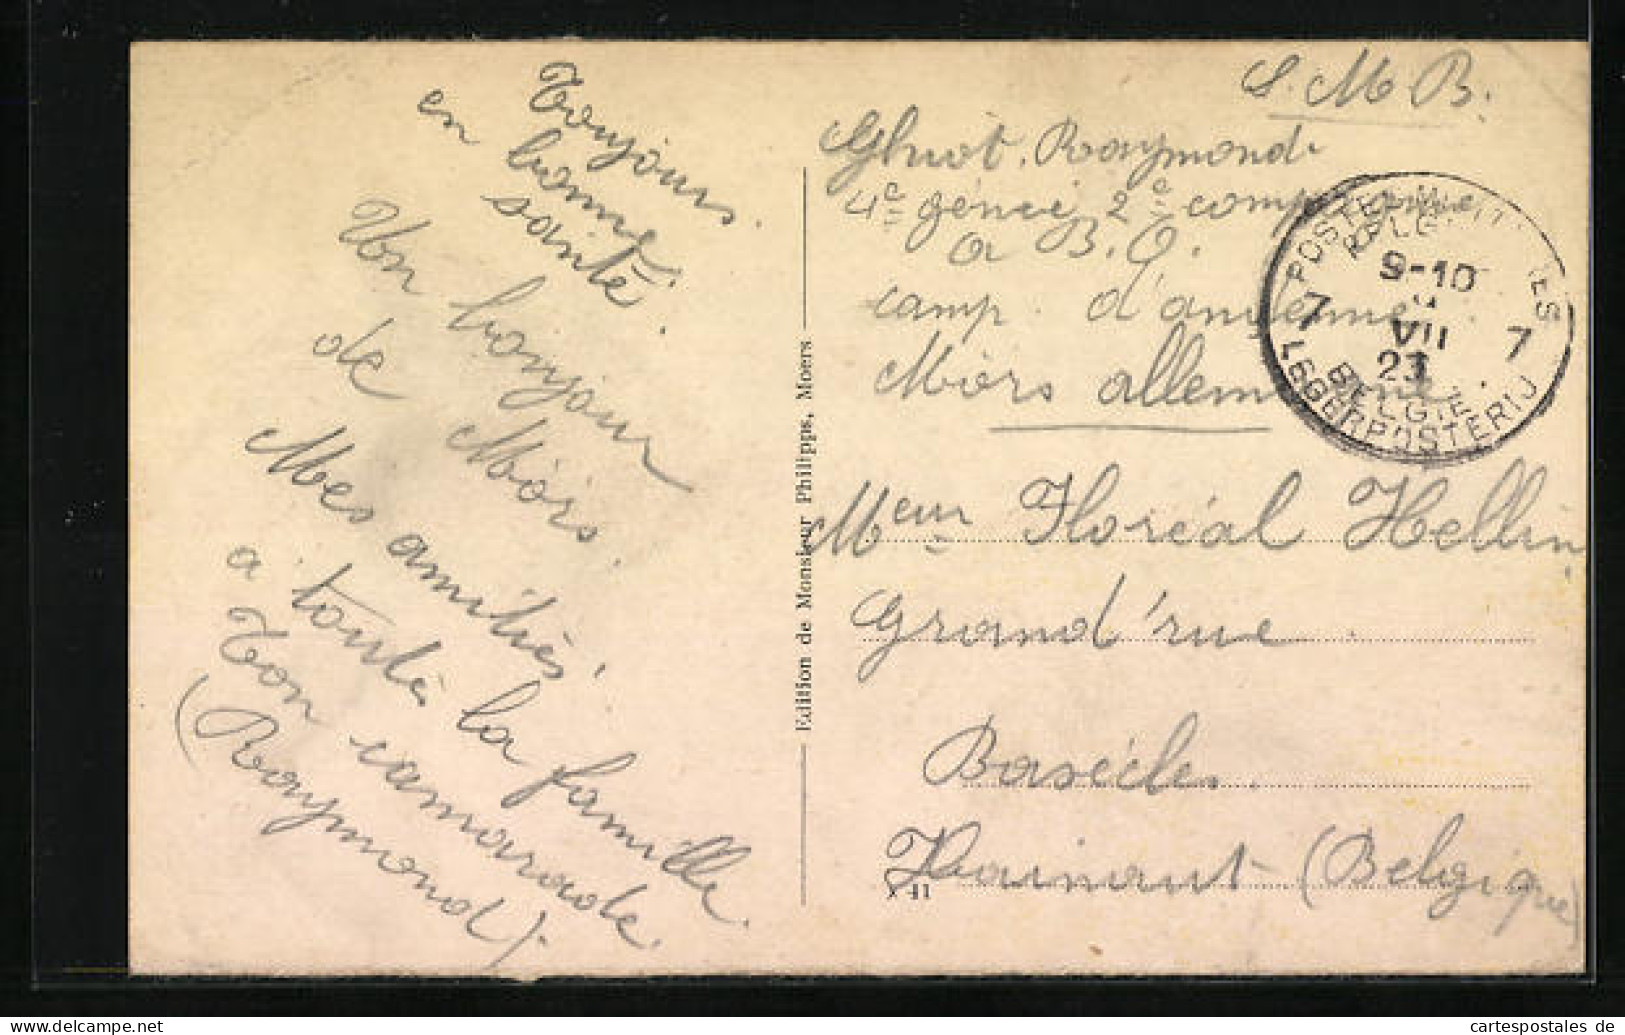 Toujours.
en bonne
santé.
Un bonjour
de Mörs.
Mes amitiés
a toute la famille.
Ton camarade.
(Raymond).
Edition de Monsieur Philipps, Moers
S.M.B.
Raymond.
4e génie 2e comp
a B.O.
camp. d'
Mörs allem
POSTES MILIT ES
BELG
9-10
VII
23
7 7
BELGIE
LEGERPOSTERIJ
Meur Floréal Hellin
Grand'rue.
Basècles.
Hainaut (Belgique)
X 41
www.cartespostales.de
cartespostales de